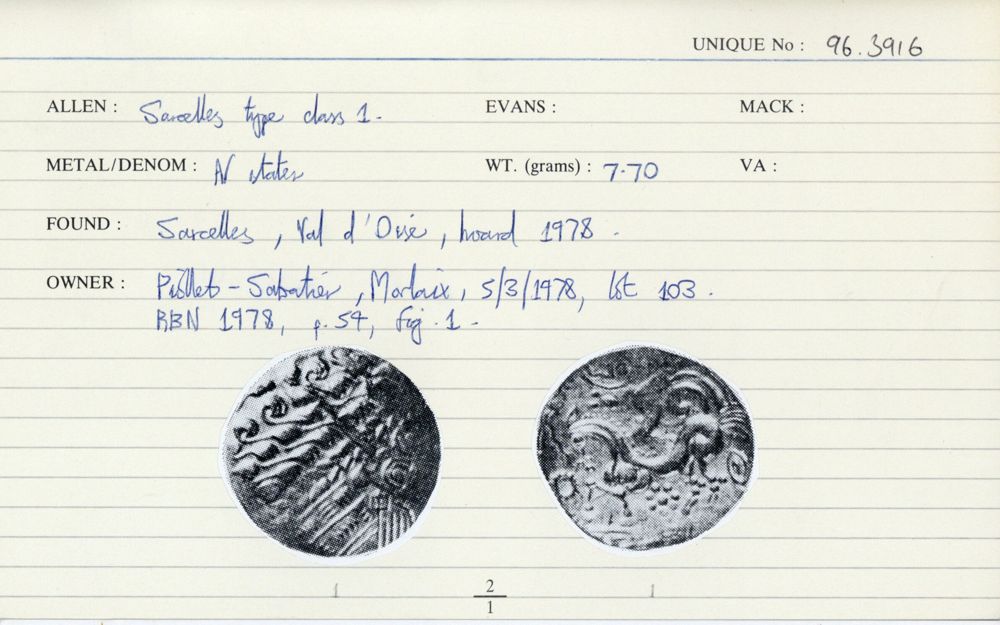 UNIQUE No : 96.3916
ALLEN : Sarcelles type class 1. EVANS : MACK :
METAL/DENOM : N stater WT. (grams) : 7.70 VA :
FOUND : Sarcelles, Val d'Oise, hoard 1978.
OWNER : Sabatier, Morlaix, 5/3/1978, lot 103.
RBN 1978, p. 54, fig. 1.
1 2/1 1